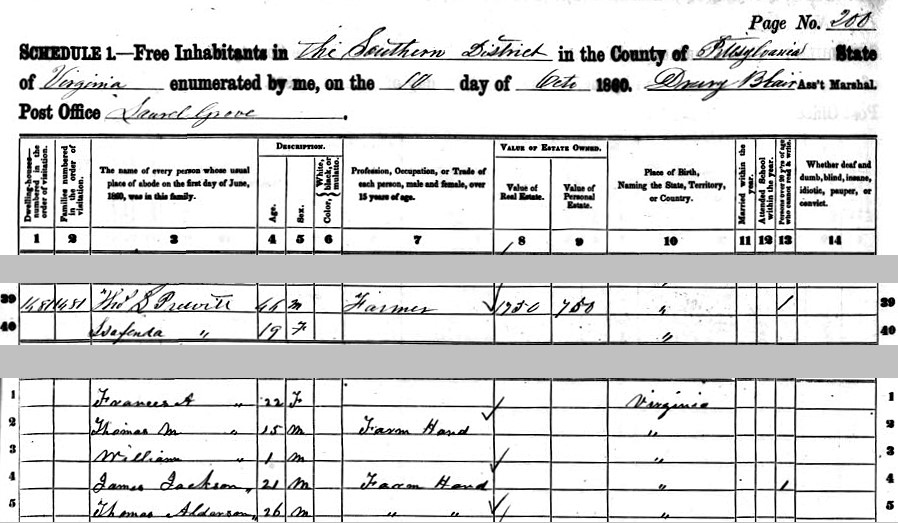 Page No. 200
SCHEDULE 1.—Free Inhabitants in the Southern District in the County of Pittsylvania State
of Virginia enumerated by me, on the 10 day of Octo 1860. Drury Blair Ass't Marshal.
Post Office Laurel Grove.
Dwelling-houses—numbered in the order of visitation.
Families numbered in the order of visitation.
The name of every person whose usual place of abode on the first day of June, 1860, was in this family.
DESCRIPTION.
Age.
Sex.
Color, White, black, or mulatto.
Profession, Occupation, or Trade of each person, male and female, over 15 years of age.
VALUE OF ESTATE OWNED.
Value of Real Estate.
Value of Personal Estate.
Place of Birth, Naming the State, Territory, or Country.
Married within the year.
Attended School within the year.
Persons over 20 y'rs of age who cannot read & write.
Whether deaf and dumb, blind, insane, idiotic, pauper, or convict.
1 2 3 4 5 6 7 8 9 10 11 12 13 14
39 1481 1481 Thos S Prewitt 46 M Farmer 1750 750 " 1 39
40 " 19 F " 40
1 Frances A " 22 F Virginia 1
2 Thomas M " 15 M Farm Hand " 2
3 William " 1 M " 3
4 James Jackson " 21 M Farm Hand " 1 4
5 Thomas Alderson " 26 M " " " 5